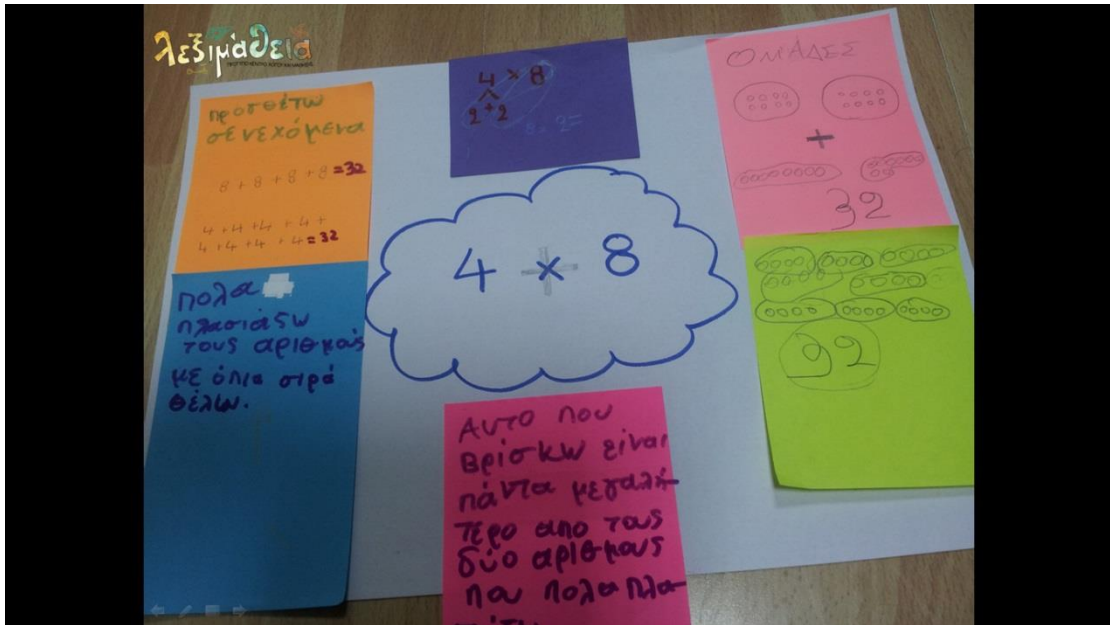 λεξιμάθεια
προσθέτω
σενεχόμενα
8 + 8 + 8 + 8 = 32
4 + 4 + 4 + 4 +
4 + 4 + 4 + 4 = 32
πολα
πλασιάζω
τους αριθμούς
με όπια σιρά
θέλω.
4 × 8
2 + 2
4 × 8
Αυτο που
βρίσκω είναι
πάντα μεγαλή-
τερο απο τους
δύο αριθμους
που πολαπλα-
ΟΜΑΔΕΣ
+
32
32